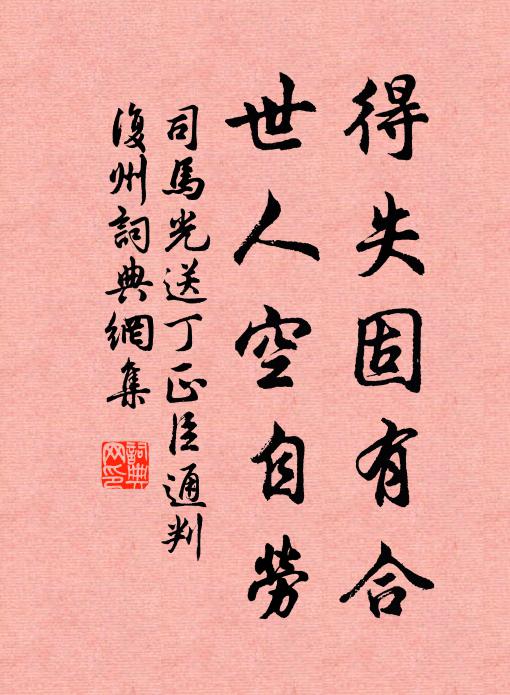 得失固有合
世人空自勞
司馬光送丁正臣通判
復州詞典網集
詞典
网印